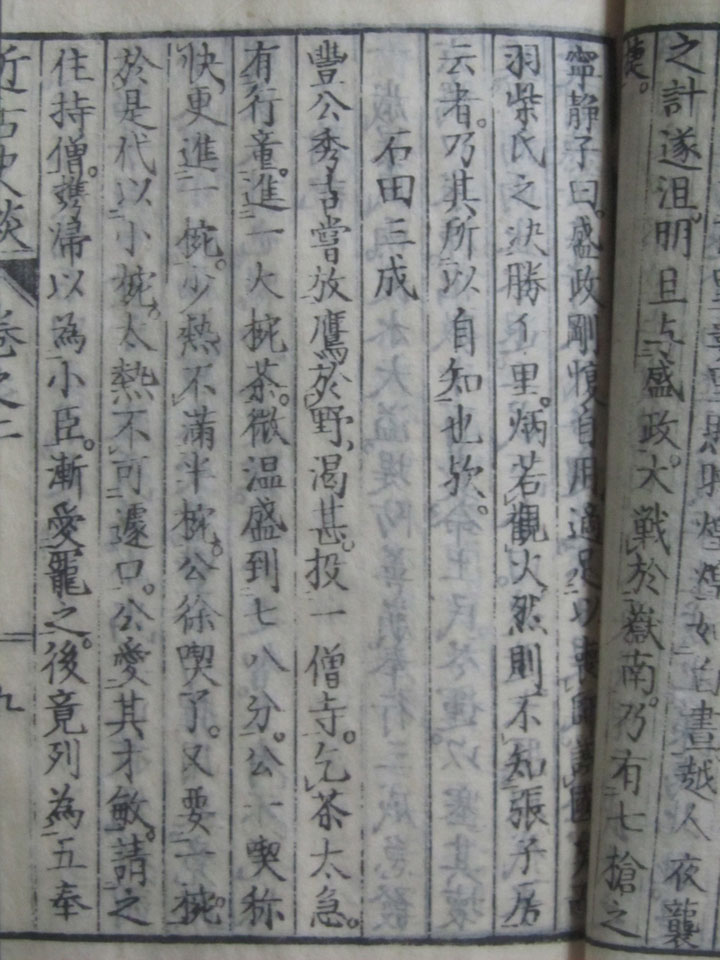 之計遂沮。明旦与盛政。大戦於嶽南。乃有七槍之
捷。
寧静子曰。盛政剛愎自用。適足以喪師
羽柴氏之决勝千里。炳若觀火。然則不知張子房
云者。乃其所以自知也歟。
石田三成
豐公秀吉嘗放鷹於野、渴甚。投一僧寺。乞茶太急。
有行童。進一大椀茶。微温盛到七八分。公一喫称
快。更進一椀。少熱不滿半椀。公徐喫了。又要一椀。
於是代以小椀。太熱不可遽口。公愛其才敏。請之
住持僧。携帰以為小臣。漸愛寵之。後竟列為五奉
近古史談 卷之二 九